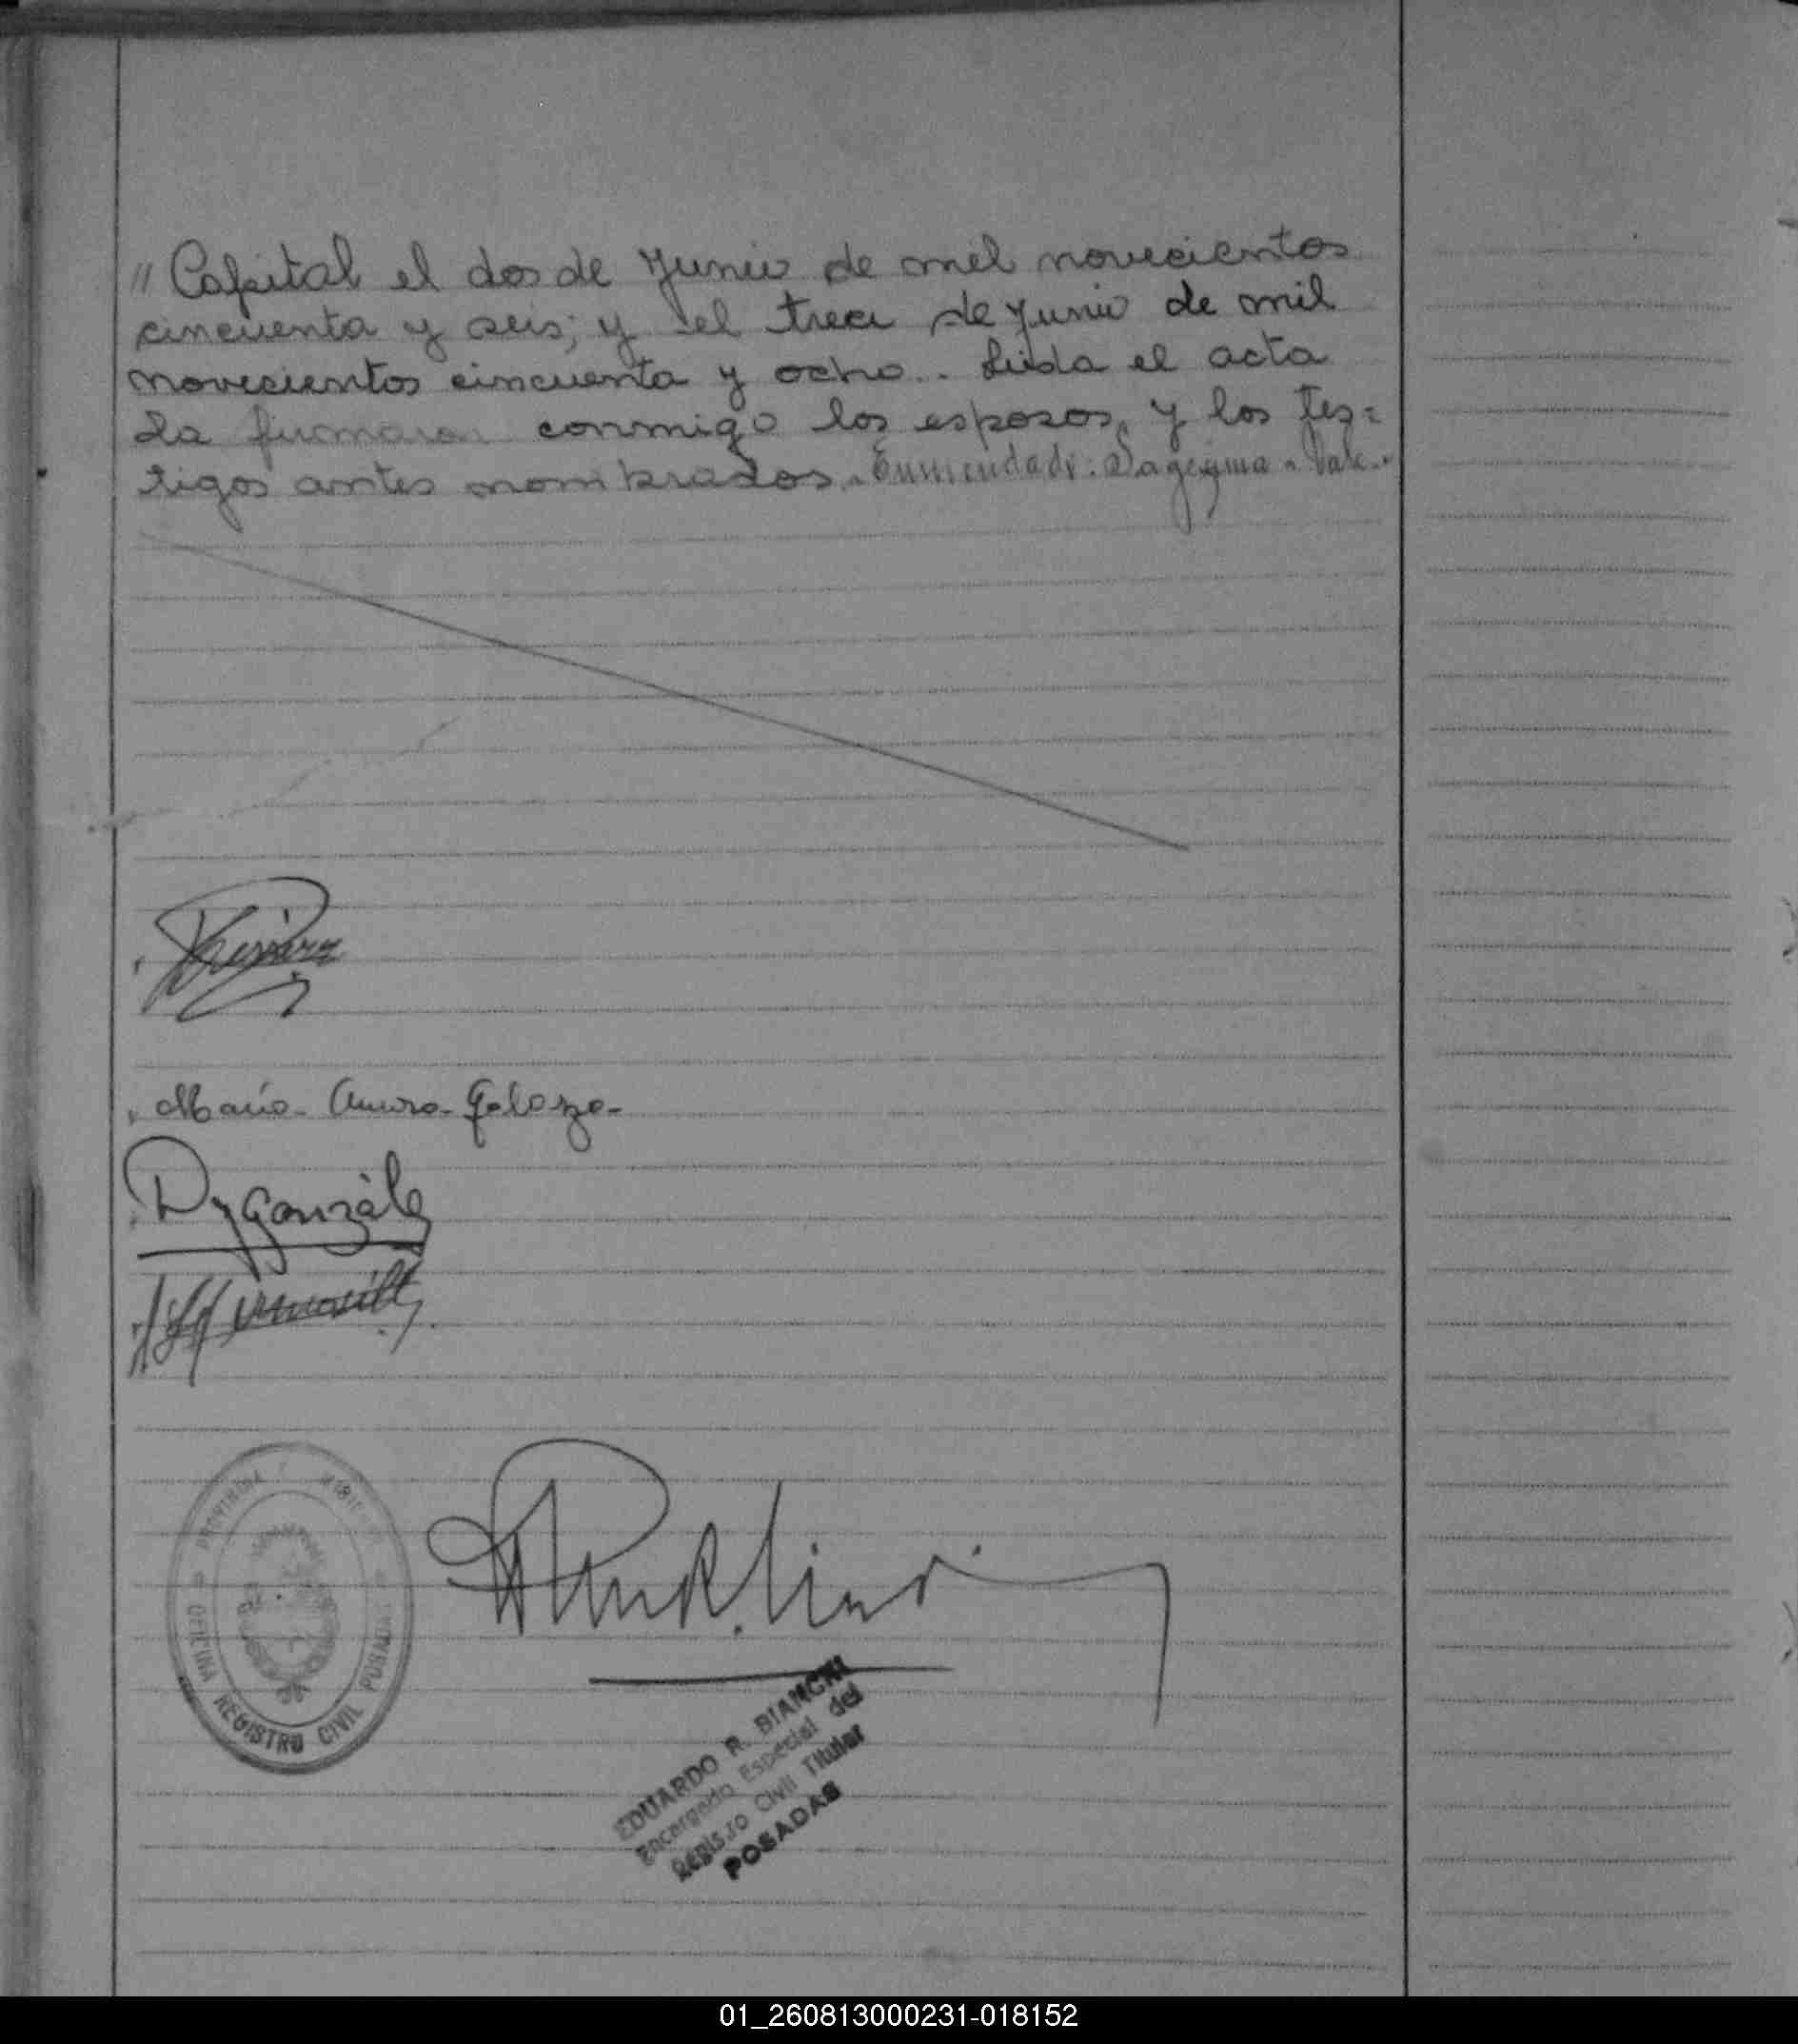 " Capital el dos de Junio de mil novecientos
cincuenta y seis; y el trece de Junio de mil
novecientos cincuenta y ocho.. Leida el acta
la firmaron conmigo los esposos, y los tes=
tigos antes nombrados.- Enmendado: - Vale.-
Maria Galarza-
Gonzále
PROVINCIA
OFICINA REGISTRO CIVIL POSADAS
EDUARDO R. BIANCHI
Encargado Especial del
Registro Civil Titular
POSADAS
01_260813000231-018152